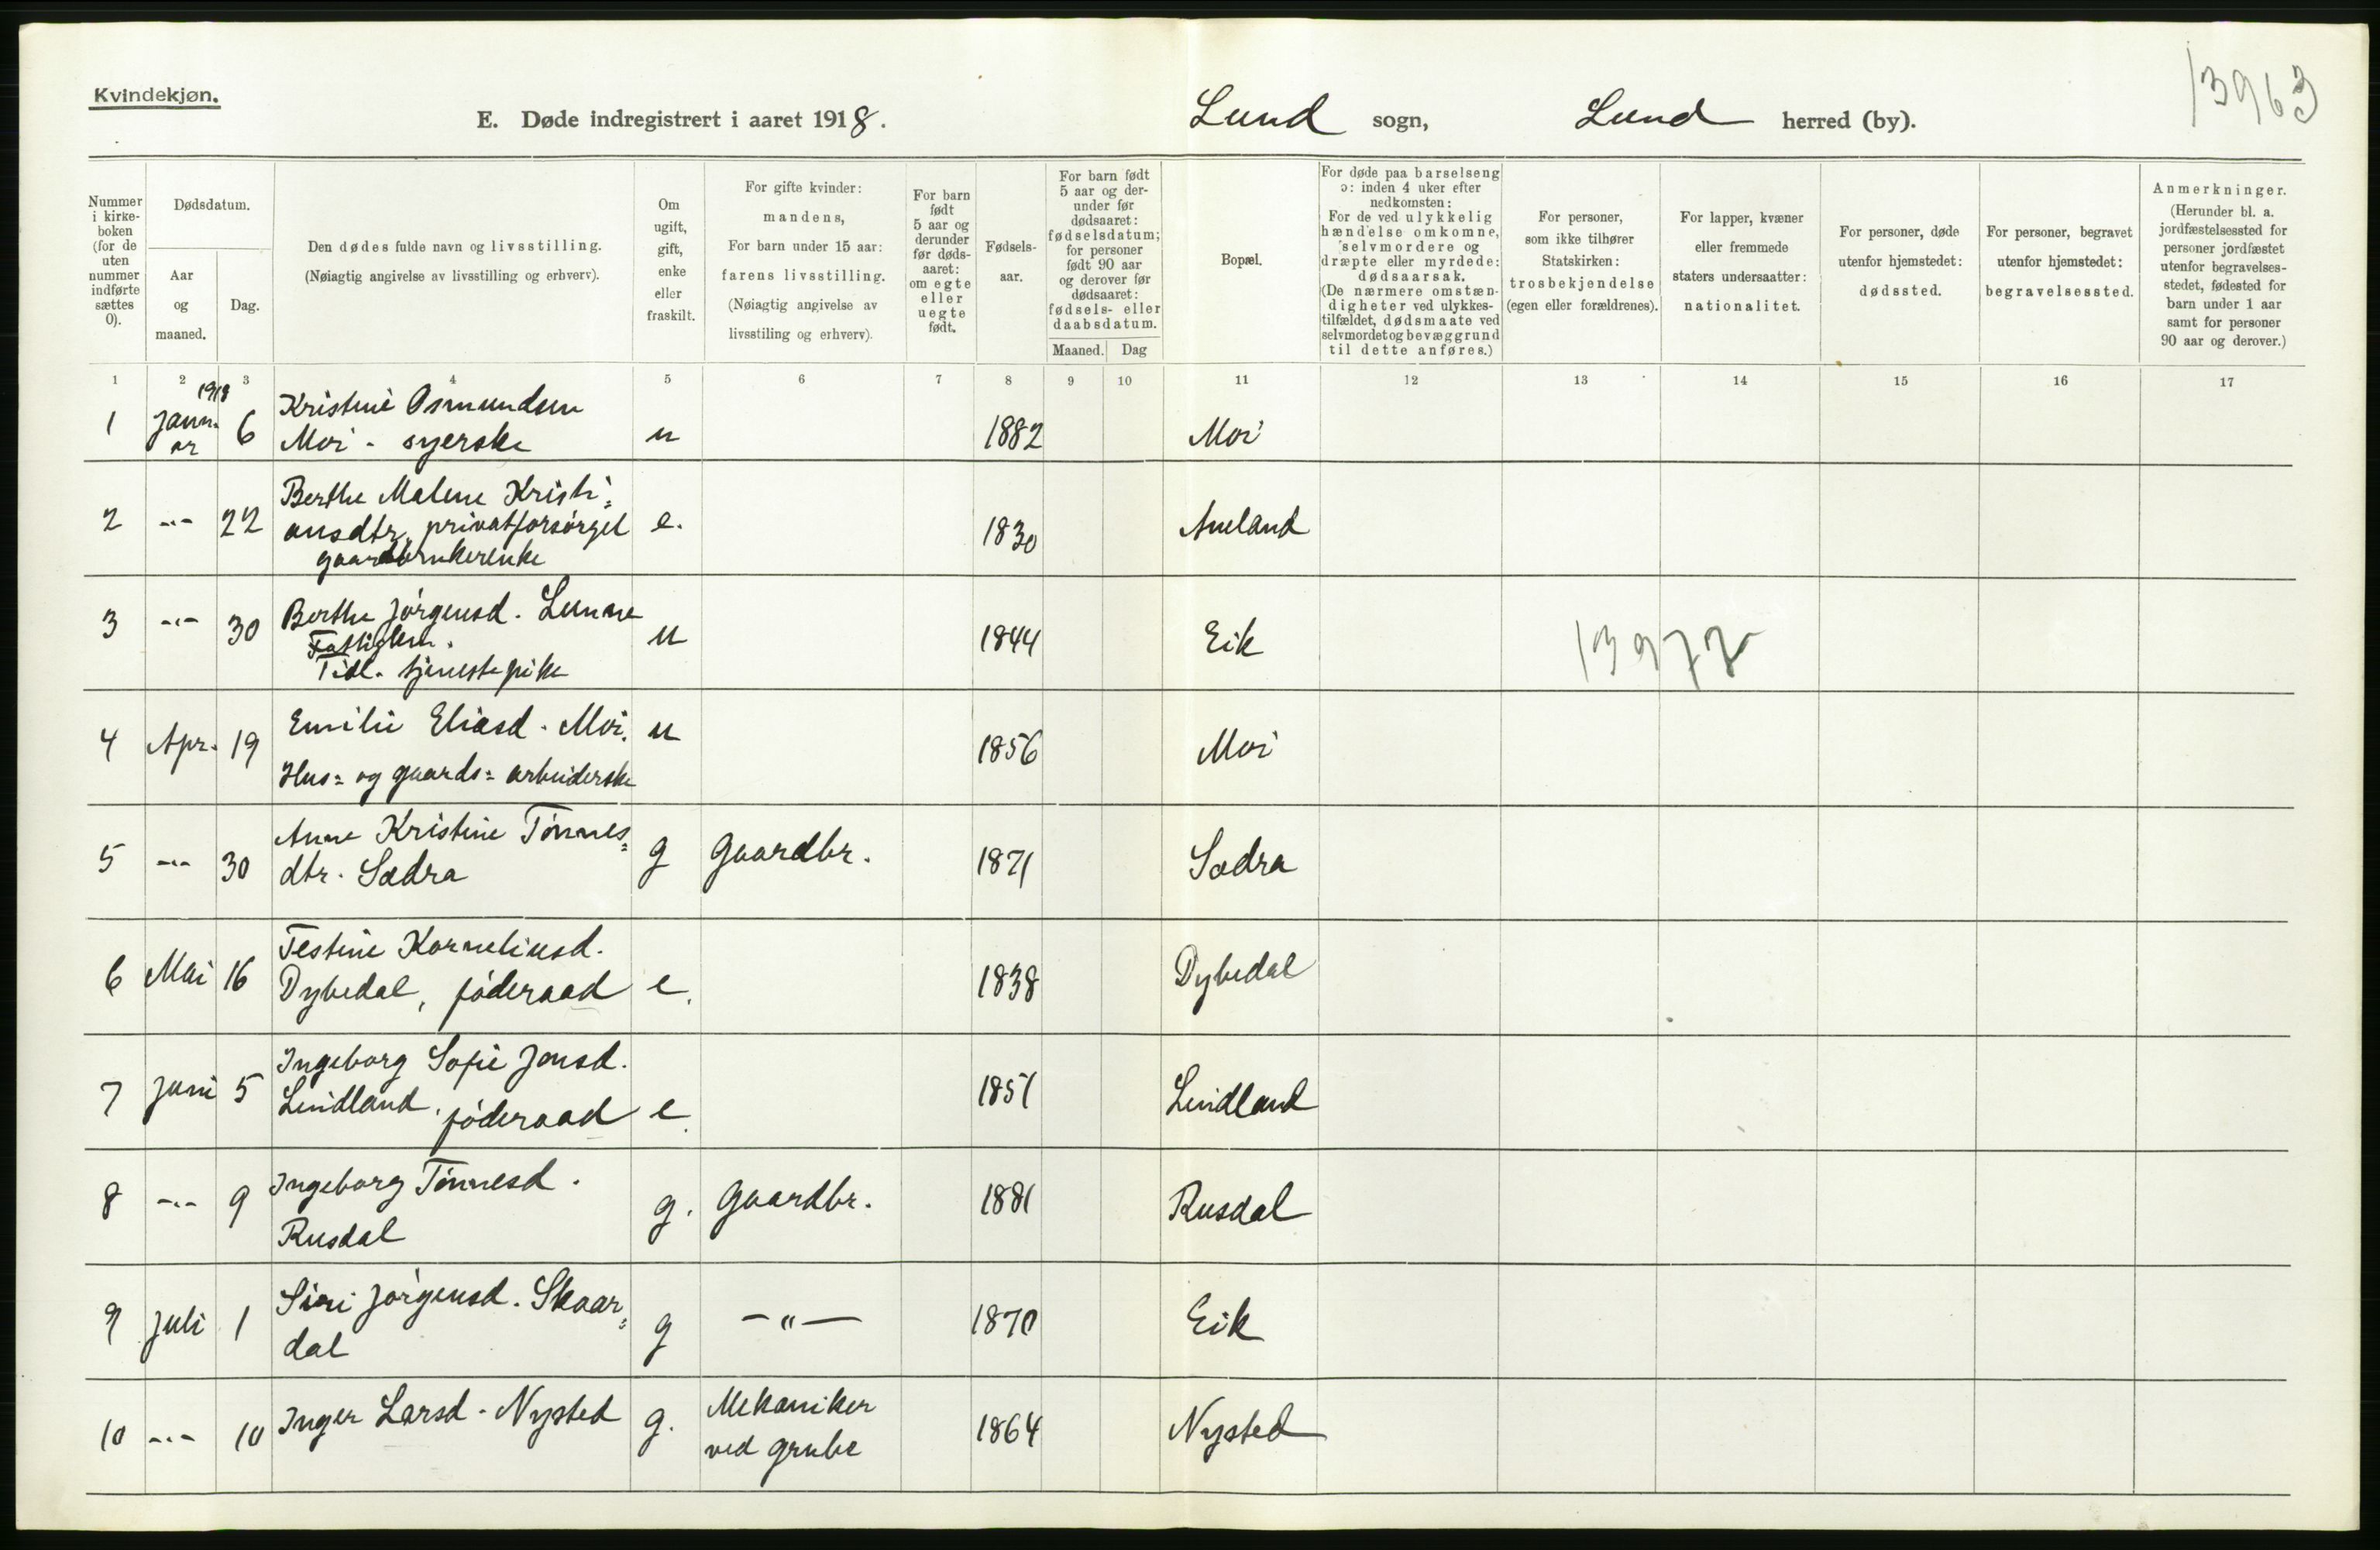 Kvindekjøn.
13963
E. Døde indregistrert i aaret 1918. Lund sogn, Lund herred (by).
Nummer i kirke-boken (for de uten nummer indførte sættes 0).
Dødsdatum.
Aar og maaned.
Dag.
Den dødes fulde navn og livsstilling.
(Nøiagtig angivelse av livsstilling og erhverv).
Om ugift, gift, enke eller fraskilt.
For gifte kvinder: mandens,
For barn under 15 aar: farens livsstilling.
(Nøiagtig angivelse av livsstiling og erhverv).
For barn født 5 aar og derunder før døds-aaret: om egte eller uegte født.
Fødsels-aar.
For barn født 5 aar og der-under før dødsaaret: fødselsdatum; for personer født 90 aar og derover før dødsaaret: fødsels- eller daabsdatum.
Maaned. Dag
Bopæl.
For døde paa barselseng ɔ: inden 4 uker efter nedkomsten:
For de ved ulykkelig hændelse omkomne, selvmordere og dræpte eller myrdede: dødsaarsak.
(De nærmere omstæn-digheter ved ulykkes-tilfældet, dødsmaate ved selvmordet og bevæggrund til dette anføres.)
For personer, som ikke tilhører Statskirken: trosbekjendelse (egen eller forældrenes).
For lapper, kvæner eller fremmede staters undersaatter: nationalitet.
For personer, døde utenfor hjemstedet: dødssted.
For personer, begravet utenfor hjemstedet: begravelsessted.
Anmerkninger.
(Herunder bl. a. jordfæstelsessted for personer jordfæstet utenfor begravelses-stedet, fødested for barn under 1 aar samt for personer 90 aar og derover.)
1 2 3 4 5 6 7 8 9 10 11 12 13 14 15 16 17
1918
1 Janu-ar 6 Kristine Osmundsen
Moi - syerske u 1882 Moi
2 -"- 22 Berthe Malene Kristi=
ansdtr, privatforsörget e. 1830 Aueland
gaardbrukerenke
3 -"- 30 Berthe Jörgensd. Lunne u 1844 Eik 13977
Fattiglem.
Tidl. tjenestepike
4 Apr. 19 Emilie Eliasd. Moi. u 1856 Moi
Hus= og gaards= arbeiderske
5 -"- 30 Anne Kristine Tönnes=
dtr. Sædra g Gaardbr. 1871 Sædra
6 Mai 16 Testine Korneliusd.
Dybedal, föderaad e. 1838 Dybedal
7 Juni 5 Ingeborg Sofie Jonsd.
Lindland, föderaad e. 1851 Lindland
8 -"- 9 Ingeborg Tönnesd.
Rusdal g. Gaardbr. 1881 Rusdal
9 Juli 1 Siri Jörgensd. Skaar=
dal g -"- 1870 Eik
10 -"- 10 Inger Larsd. Nysted g. Mekaniker
ved grube 1864 Nysted